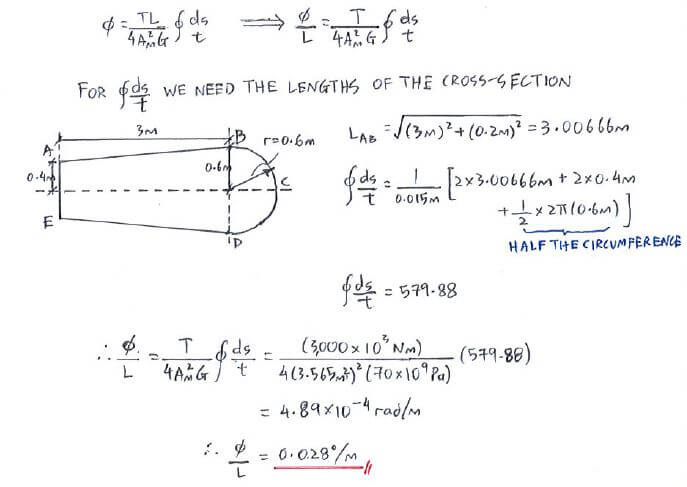 φ = TL/4A_M²G ∮ds/t ⟹ φ/L = T/4A_M²G ∮ds/t
FOR ∮ds/t WE NEED THE LENGTHS OF THE CROSS-SECTION
3M
A
B
r=0.6m
0.4M
0.6M
C
E
D
L_AB = √((3M)² + (0.2M)²) = 3.00666M
∮ds/t = 1/0.015M [2×3.00666M + 2×0.4M
+ 1/2 × 2π(0.6M)]
HALF THE CIRCUMFERENCE
∮ds/t = 579.88
∴ φ/L = T/4A_M²G ∮ds/t = (3,000×10³ NM)/4(3.565M²)²(70×10⁹ Pa) (579.88)
= 4.89×10⁻⁴ rad/M
∴ φ/L = 0.028°/M